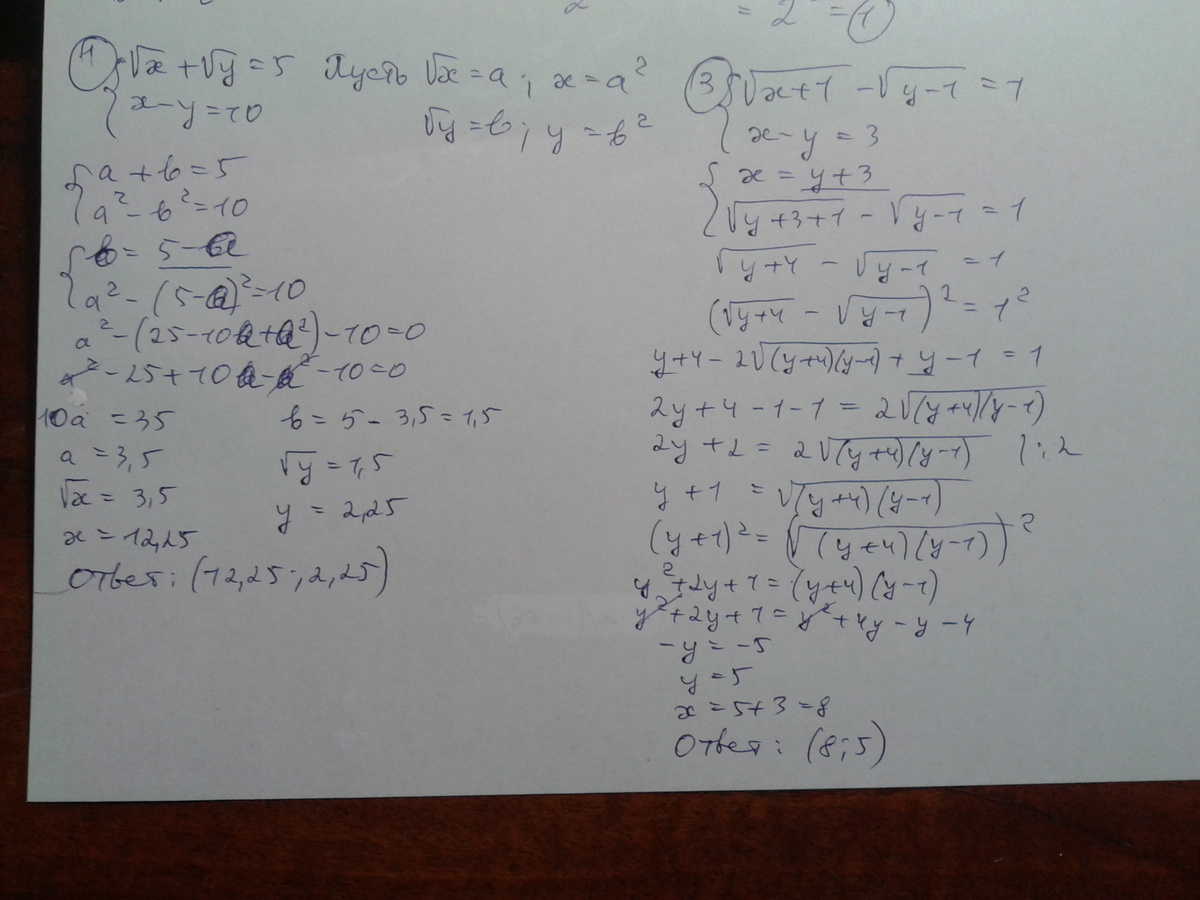 2 = 2 = 1
4 √x + √y = 5 Пусть √x = a; x = a²
x − y = 10 √y = b; y = b²
a + b = 5
a² − b² = 10
b = 5 − a
a² − (5 − a)² = 10
a² − (25 − 10a + a²) − 10 = 0
a² − 25 + 10a − a² − 10 = 0
10a = 35 b = 5 − 3,5 = 1,5
a = 3,5 √y = 1,5
√x = 3,5 y = 2,25
x = 12,25
Ответ: (12,25; 2,25)
3 √x+1 − √y−1 = 1
x − y = 3
x = y + 3
√y+3+1 − √y−1 = 1
√y+4 − √y−1 = 1
(√y+4 − √y−1)² = 1²
y+4 − 2√(y+4)(y−1) + y − 1 = 1
2y + 4 − 1 − 1 = 2√(y+4)(y−1)
2y + 2 = 2√(y+4)(y−1) |:2
y + 1 = √(y+4)(y−1)
(y+1)² = (√(y+4)(y−1))²
y² + 2y + 1 = (y+4)(y−1)
y² + 2y + 1 = y² + 4y − y − 4
−y = −5
y = 5
x = 5 + 3 = 8
Ответ: (8; 5)